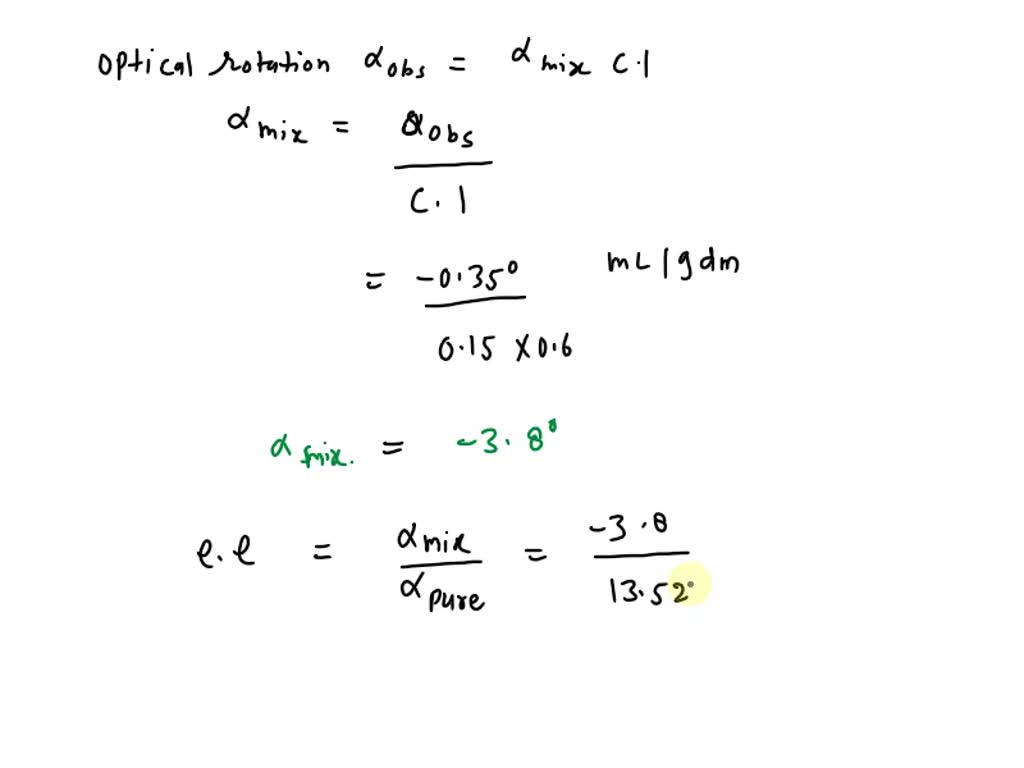 optical rotation α obs = α mix c.l
α mix = α obs / c.l
= -0.35° / 0.15 × 0.6 mL/gdm
α mix. = -3.8°
e.e = α mix / α pure = -3.8 / 13.52°